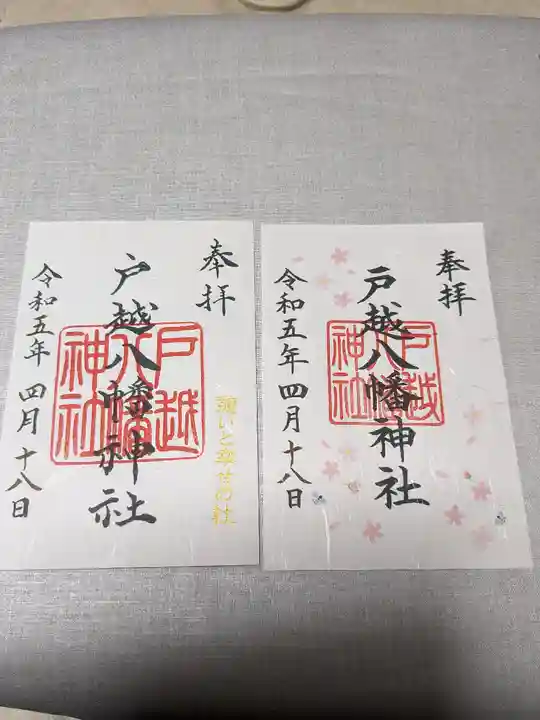 奉拝
戸越八幡神社
令和五年 四月十八日
戸越
八幡
神社
願いと幸せの社
奉拝
戸越八幡神社
令和五年 四月十八日
戸越
八幡
神社